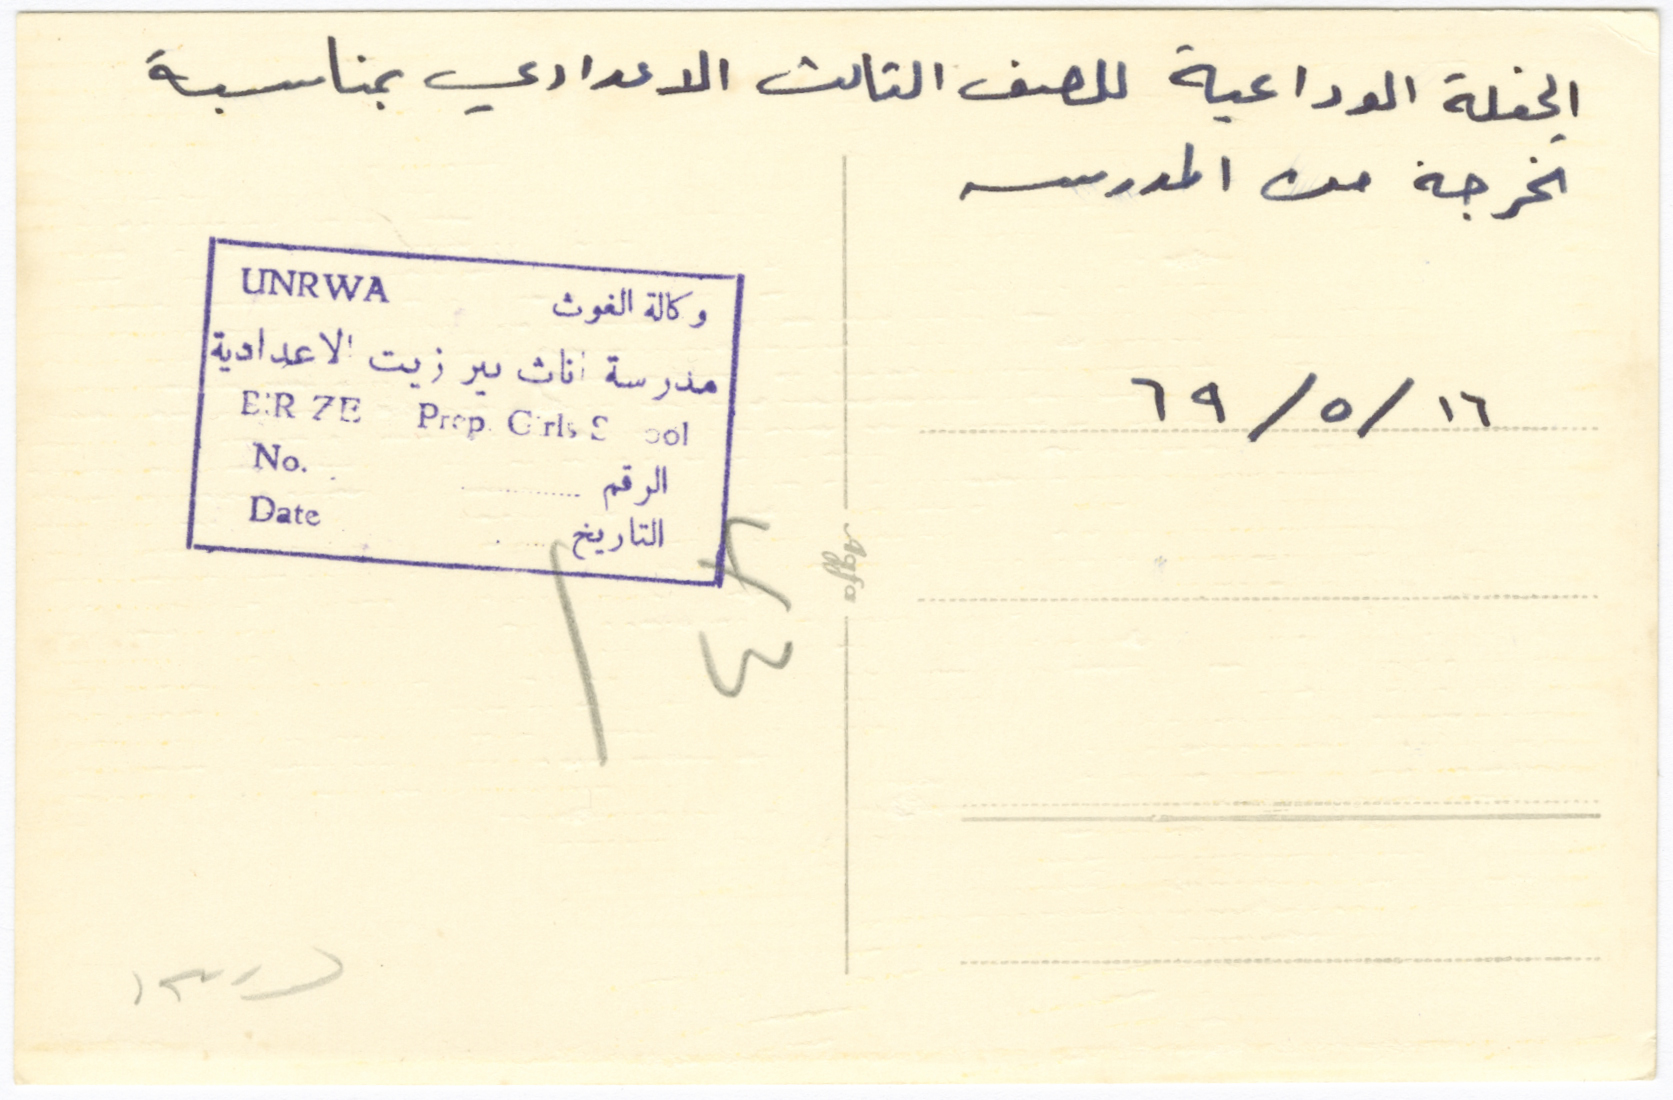 الحفلة الوداعية للصف الثالث الاعدادي بمناسبة
تخرجة من المدرسه
١٦/٥/٦٩
UNRWA وكالة الغوث
مدرسة اناث بير زيت الاعدادية
BIR ZE Prep. Girls S ool
No. الرقم
Date التاريخ
Agfa